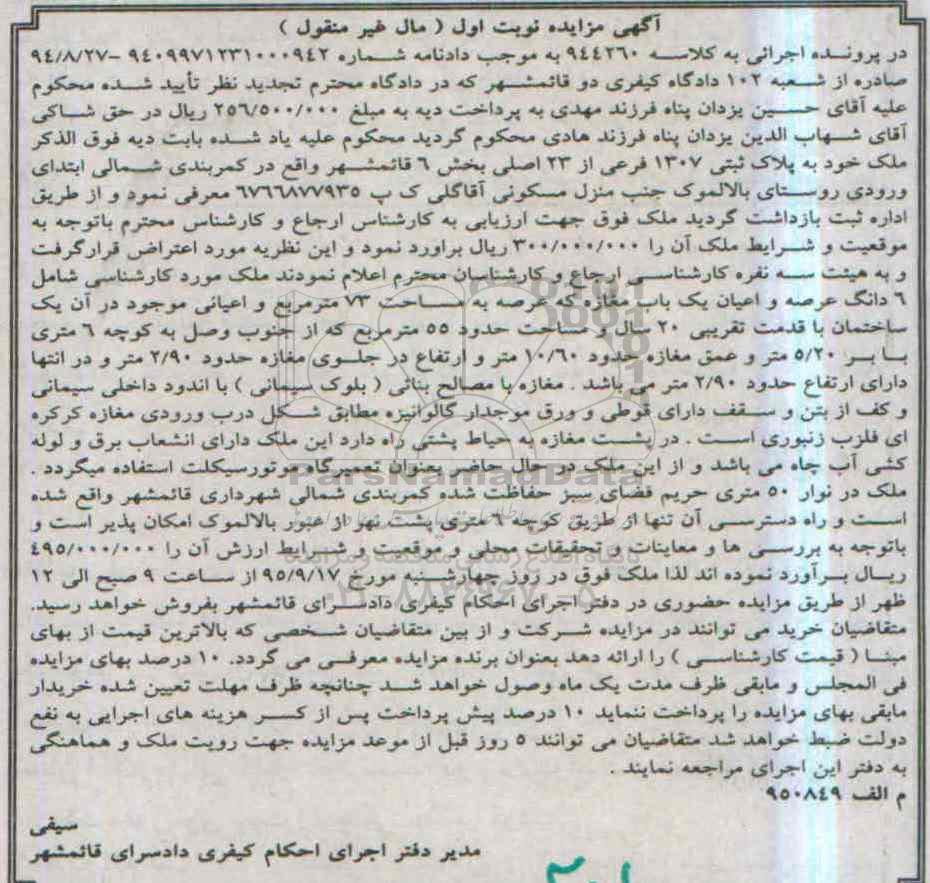 آگهی مزایده نوبت اول ( مال غیر منقول )
در پرونده اجرائی به کلاسه ۹۴۴۲۶۰ به موجب دادنامه شماره ۹۴۰۹۹۷۱۲۳۱۰۰۰۹۴۲ –۹۴/۸/۲۷
صادره از شعبه ۱۰۲ دادگاه کیفری دو قائمشهر که در دادگاه محترم تجدید نظر تأیید شده محکوم
علیه آقای حسین یزدان پناه فرزند مهدی به پرداخت دیه به مبلغ ۲۵۶/۵۰۰/۰۰۰ ریال در حق شاکی
آقای شهاب الدین یزدان پناه فرزند هادی محکوم گردید محکوم علیه یاد شده بابت دیه فوق الذکر
ملک خود به پلاک ثبتی ۱۳۰۷ فرعی از ۲۳ اصلی بخش ۶ قائمشهر واقع در کمربندی شمالی ابتدای
ورودی روستای بالالموک جنب منزل مسکونی آقاگلی ک پ ۶۷۶۶۸۷۷۹۳۵ معرفی نمود و از طریق
اداره ثبت بازداشت گردید ملک فوق جهت ارزیابی به کارشناس ارجاع و کارشناس محترم باتوجه به
موقعیت و شرایط ملک آن را ۳۰۰/۰۰۰/۰۰۰ ریال براورد نمود و این نظریه مورد اعتراض قرارگرفت
و به هیئت سه نفره کارشناسی ارجاع و کارشناسان محترم اعلام نمودند ملک مورد کارشناسی شامل
۶ دانگ عرصه و اعیان یک باب مغازه که عرصه به مساحت ۷۳ مترمربع و اعیانی موجود در آن یک
ساختمان با قدمت تقریبی ۲۰ سال و مساحت حدود ۵۵ مترمربع که از جنوب وصل به کوچه ۶ متری
با بر ۵/۲۰ متر و عمق مغازه حدود ۱۰/۶۰ متر و ارتفاع در جلوی مغازه حدود ۲/۹۰ متر و در انتها
دارای ارتفاع حدود ۲/۹۰ متر می باشد . مغازه با مصالح بنائی ( بلوک سیمانی ) با اندود داخلی سیمانی
و کف از بتن و سقف دارای قوطی و ورق موجدار گالوانیزه مطابق شکل درب ورودی مغازه کرکره
ای فلزب زنبوری است . در پشت مغازه به حیاط پشتی راه دارد این ملک دارای انشعاب برق و لوله
کشی آب چاه می باشد و از این ملک در حال حاضر بعنوان تعمیرگاه موتورسیکلت استفاده میگردد .
ملک در نوار ۵۰ متری حریم فضای سبز حفاظت شده کمربندی شمالی شهرداری قائمشهر واقع شده
است و راه دسترسی آن تنها از طریق کوچه ۶ متری پشت نهر از عبور بالالموک امکان پذیر است و
باتوجه به بررسی ها و معاینات و تحقیقات محلی و موقعیت و شرایط ارزش آن را ۴۹۵/۰۰۰/۰۰۰
ریال برآورد نموده اند لذا ملک فوق در روز چهارشنبه مورخ ۹۵/۹/۱۷ از ساعت ۹ صبح الی ۱۲
ظهر از طریق مزایده حضوری در دفتر اجرای احکام کیفری دادسرای قائمشهر بفروش خواهد رسید.
متقاضیان خرید می توانند در مزایده شرکت و از بین متقاضیان شخصی که بالاترین قیمت از بهای
مبنا ( قیمت کارشناسی ) را ارائه دهد بعنوان برنده مزایده معرفی می گردد. ۱۰ درصد بهای مزایده
فی المجلس و مابقی ظرف مدت یک ماه وصول خواهد شد چنانچه ظرف مهلت تعیین شده خریدار
مابقی بهای مزایده را پرداخت ننماید ۱۰ درصد پیش پرداخت پس از کسر هزینه های اجرایی به نفع
دولت ضبط خواهد شد متقاضیان می توانند ۵ روز قبل از موعد مزایده جهت رویت ملک و هماهنگی
به دفتر این اجرای مراجعه نمایند .
م الف ۹۵۰۸۴۹
سیفی
مدیر دفتر اجرای احکام کیفری دادسرای قائمشهر
ParsNamadData